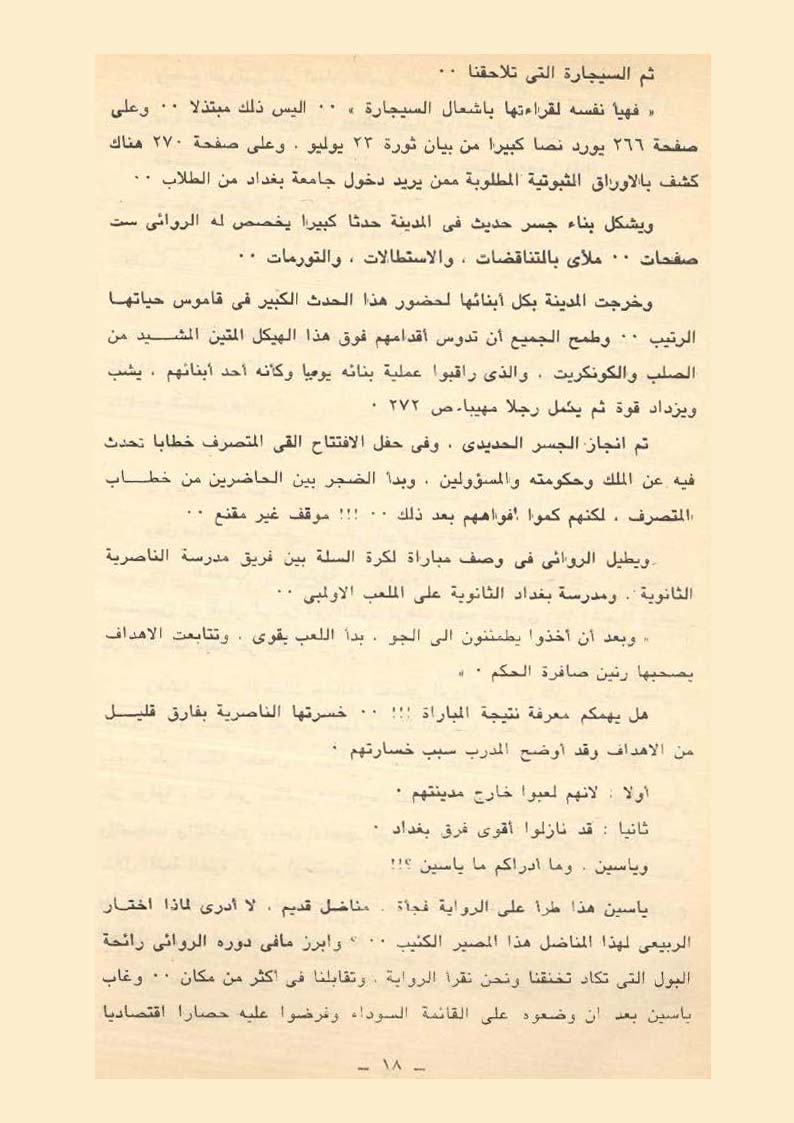 ثم السيجارة التى تلاحقنا ٠٠
« فهيأ نفسه لقراءتها باشعال السيجارة » ٠٠ اليس ذلك مبتذلا ٠٠ وعلى
صفحة ٢٦٦ يورد نصا كبيرا من بيان ثورة ٢٣ يوليو ، وعلى صفحة ٢٧٠ هناك
كشف بالاوراق الثبوتية المطلوبة ممن يريد دخول جامعة بغداد من الطلاب ٠٠
ويشكل بناء جسر حديث فى المدينة حدثا كبيرا يخصص له الروائى ست
صفحات ٠٠ ملأى بالتناقضات ، والاستطالات ، والتورمات ٠٠
وخرجت المدينة بكل أبنائها لحضور هذا الحدث الكبير فى قاموس حياتها
الرتيب ٠٠ وطمح الجميع أن تدوس أقدامهم فوق هذا الهيكل المتين المشيد من
الصلب والكونكريت ، والذى راقبوا عملية بنائه يوميا وكأنه أحد أبنائهم ، يشب
ويزداد قوة ثم يكمل رجلا مهيبا، ص ٢٧٢ ٠
تم انجاز الجسر الحديدى ، وفى حفل الافتتاح القى المتصرف خطابا تحدث
فيه عن الملك وحكومته والمسؤولين ، وبدأ الضجر بين الحاضرين من خطاب
المتصرف ، لكنهم كموا أفواههم بعد ذلك ٠٠ !!! موقف غير مقنع ٠٠
ويطيل الروائى فى وصف مباراة لكرة السلة بين فريق مدرسة الناصرية
الثانوية ، ومدرسة بغداد الثانوية على الملعب الاولمبى ٠٠
« وبعد أن أخذوا يطمئنون الى الجو ، بدأ اللعب يقوى ، وتتابعت الاهداف
يصحبها رنين صافرة الحكم ٠ »
هل يهمكم معرفة نتيجة المباراة !!! ٠٠ خسرتها الناصرية بفارق قليل
من الاهداف وقد أوضح المدرب سبب خسارتهم ٠
أولا : لانهم لعبوا خارج مدينتهم ٠
ثانيا : قد نازلوا أقوى فرق بغداد ٠
وياسين ، وما أدراكم ما ياسين ؟!!
ياسين هذا طرأ على الرواية فجأة ، مناضل قديم ، لا أدرى لماذا اختار
الربيعى لهذا المناضل هذا المصير الكئيب ٠٠ ؟ وابرز مافى دوره الروائى رائحة
البول التى تكاد تخنقنا ونحن نقرأ الرواية ، وتقابلنا فى أكثر من مكان ٠٠ وغاب
ياسين بعد ان وضعوه على القائمة السوداء وفرضوا عليه حصارا اقتصاديا
– ١٨ –